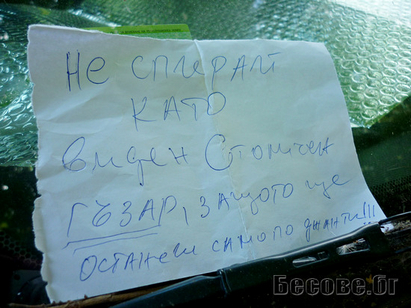 Не спирай
КАТО
виден Столичен
ГЪЗАР, защото ще
останеш само по джанти!!!
Бесове.бг